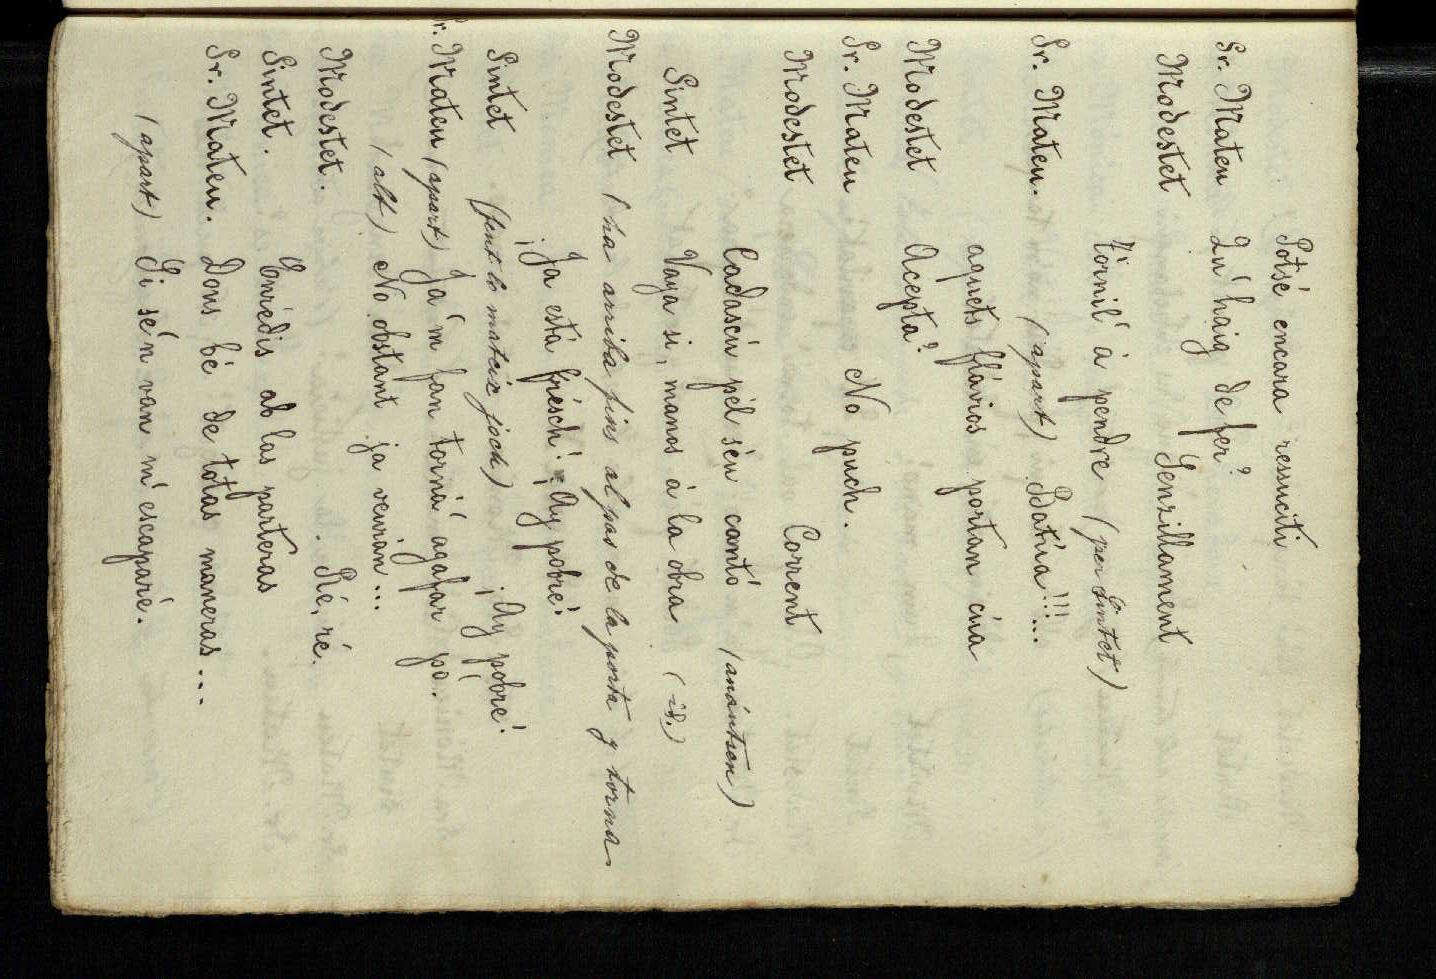 Potsé encara ressuciti
Sr. Mateu Qu' haig de fer?
Modestet Senzillament
Tórnil' á pendre (per Sintet)
Sr. Mateu. (apart) Batúa!!!...
aquets flávios portan cúa
Modestet Acepta?
Sr. Mateu No puch.
Modestet Corrent
Cadascú pél séu cantó (anántsen)
Sintet Vaya si, manos á la obra (id.)
Modestet (ha arriba fins al pas de la porta y torna
¡Ja está frésch! ¡Ay pobre!
Sintet (fent lo mateix joch) ¡Ay pobre!
Sr. Mateu (apart) Ja m' fan torná agafar po..
(alt) No obstant ja veuran...
Modestet. Ré, ré.
Sintet. Enrédis ab las parteras
Sr. Mateu. Dons bé de totas maneras....
(apart) Si sé'n van m' escaparé.